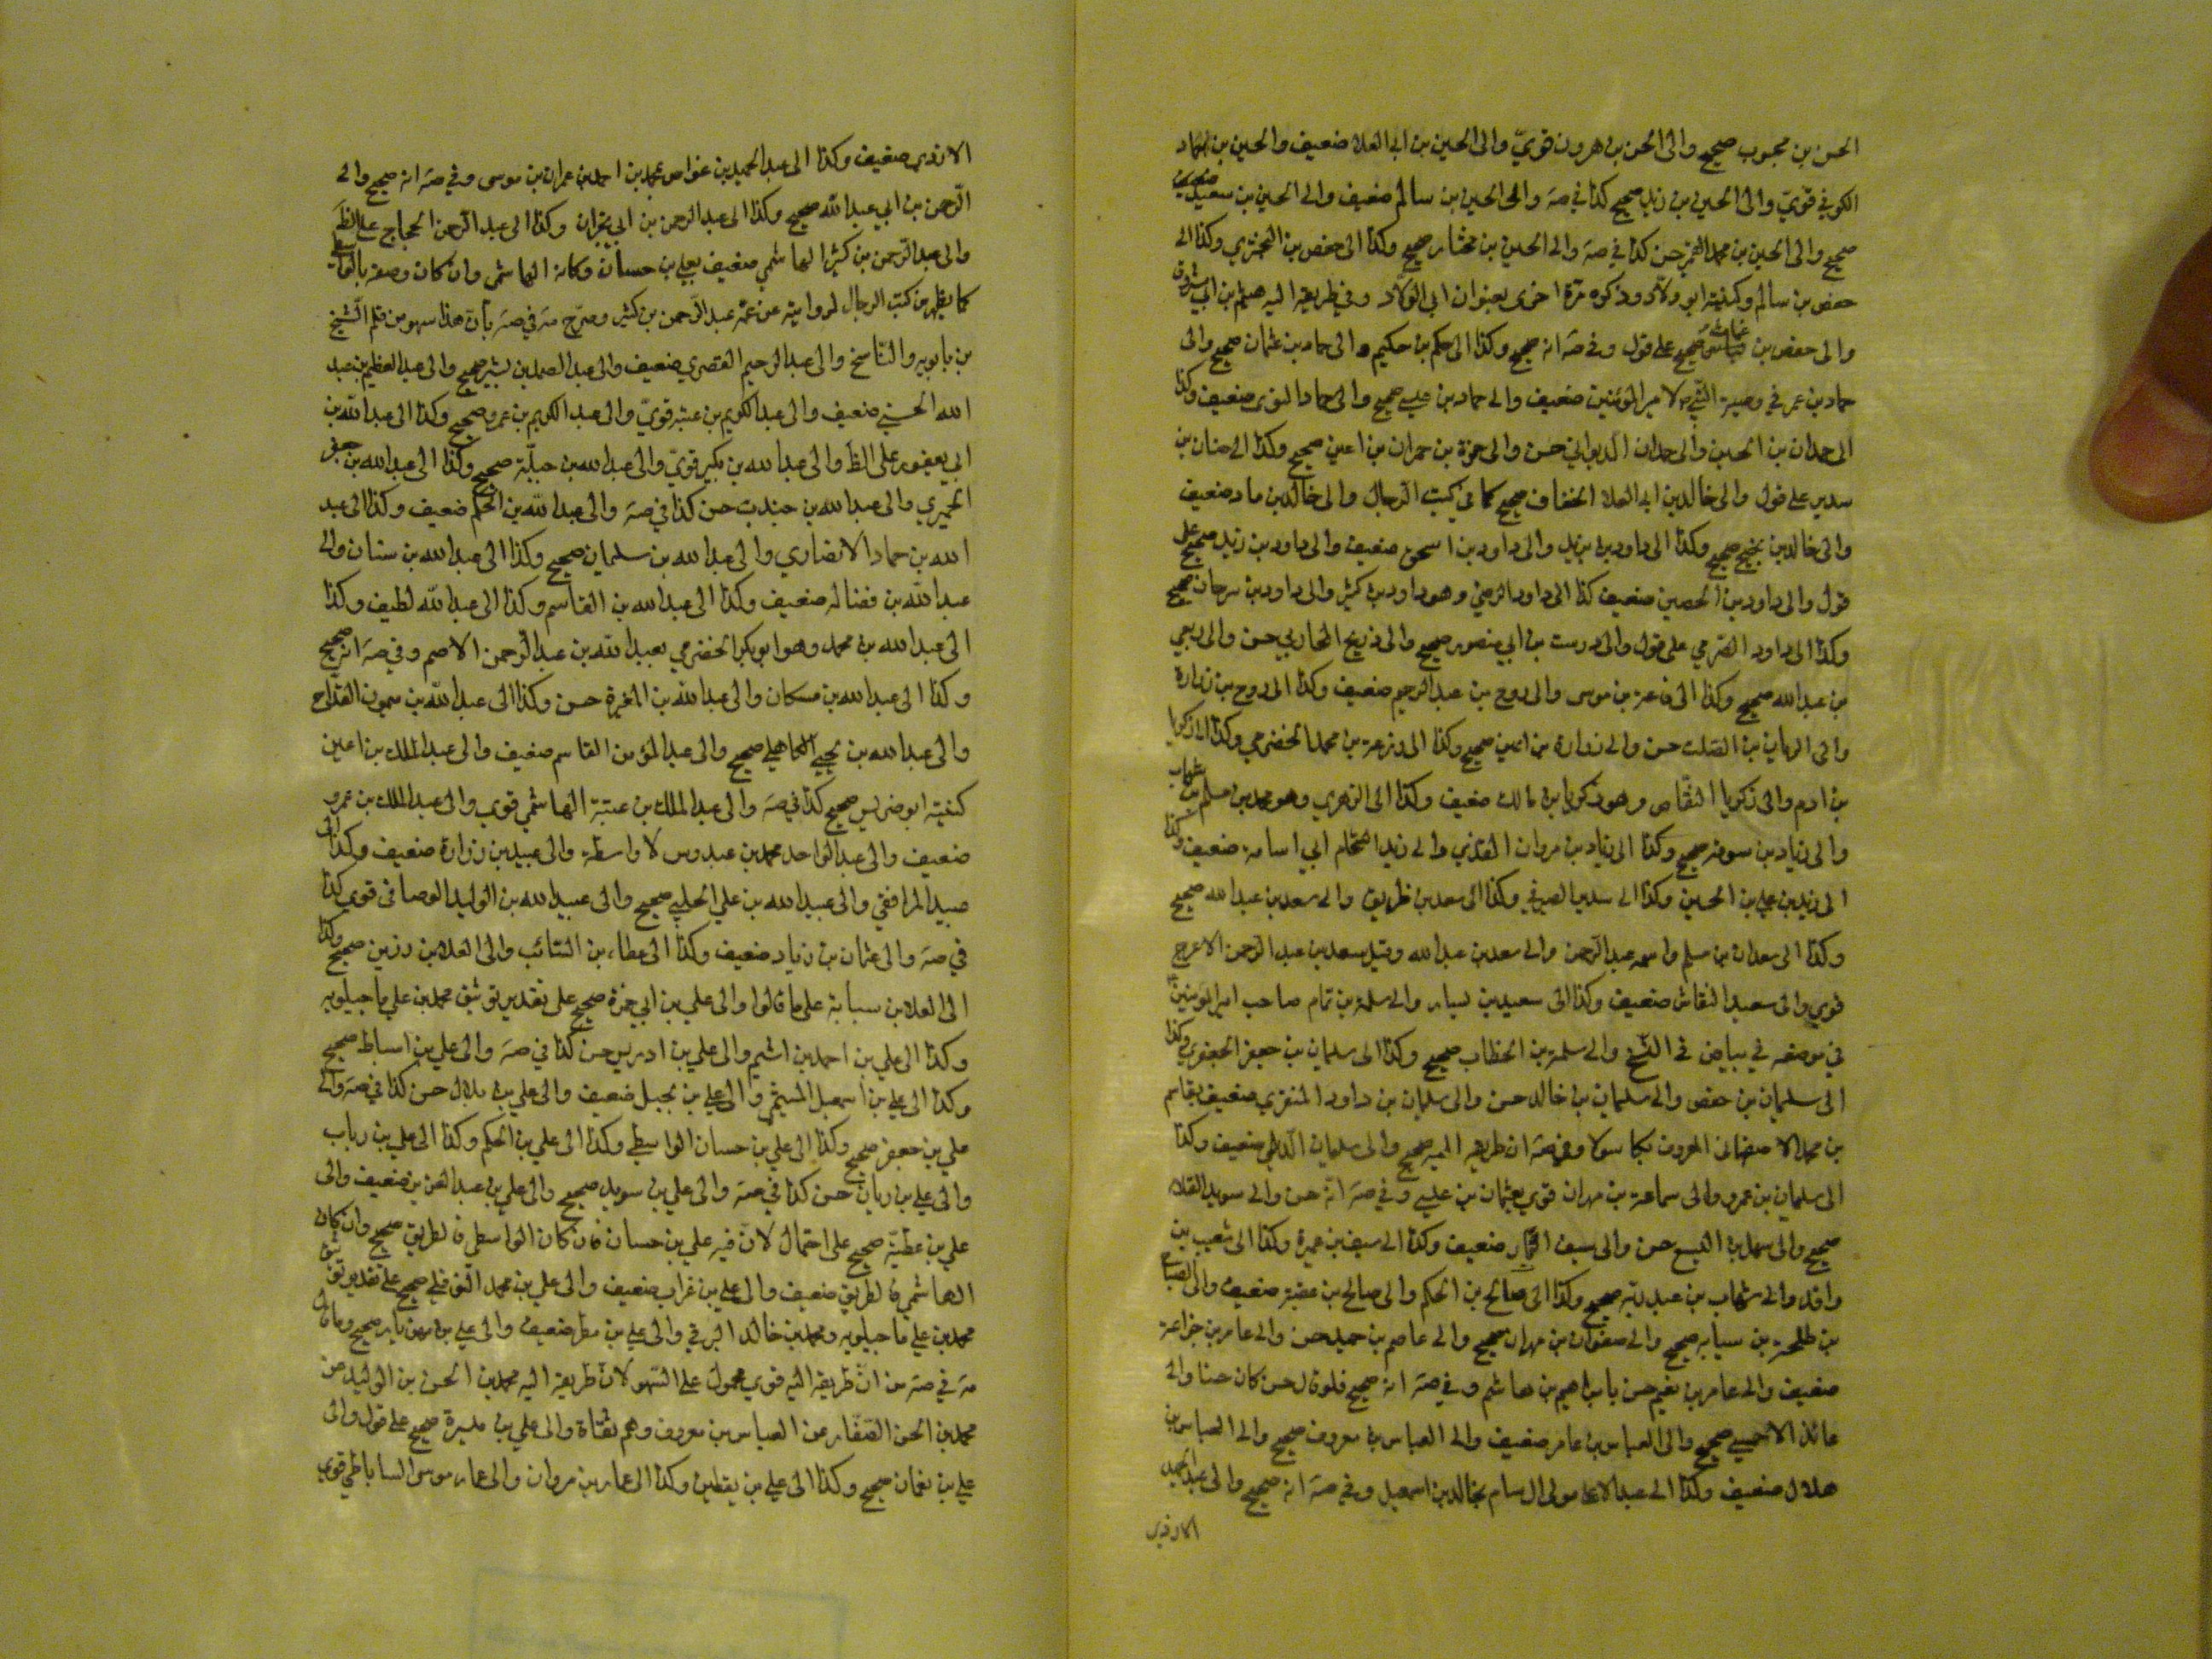 الحسن بن محبوب صحيح والى الحسن بن هرون قوي والى الحسين بن ابي العلا ضعيف والحسين بن حماد
الكوفي قوي والى الحسين بن زيد صحيح كذا في صه والى الحسين بن سالم ضعيف والى الحسين بن سعيد
صحيح والى الحسين بن محمد القمي حسن كذا في صه والى الحسين بن مختار صحيح وكذا الى حفص بن البختري وكذا الى
حفص بن سالم وكنيته ابو ولاد وذكره مرة اخرى بعنوان ابي الولاد وفي طريقه اليه هيثم بن ابي مسروق
والى حفص بن غياث صحيح على قول وفي صه انه صحيح وكذا الى حكم بن حكيم والى حماد بن عثمان صحيح والى
حماد بن عمرو في وصية النبي ص لامير المؤمنين ضعيف والى حماد بن عيسى صحيح والى حماد النوى ضعيف وكذا
الى حمدان بن الحسين والى حمدان الديواني حسن والى حمزة بن حمران بن اعين صحيح وكذا الى حنان بن
سدير على قول والى خالد بن ابي العلا الخفاف صحيح كما في كتب الرجال والى خالد بن ماد ضعيف
والى خالد بن نجيح صحيح وكذا الى داود بن ابي يزيد والى داود بن اسحق ضعيف والى داود بن زيد صحيح على
قول والى داود بن الحصين ضعيف كذا الى داود الرقي وهو داود بن كثير والى داود بن سرحان صحيح
وكذا الى داود الصرمي على قول والى درست بن ابي منصور صحيح والى ذريح المحاربي حسن والى ربعي
بن عبد الله صحيح وكذا الى رفاعة بن موسى والى روح بن عبد الرحيم ضعيف وكذا الى روح بن زرارة
والى الريان بن الصلت حسن والى زرارة بن اعين صحيح وكذا الى زرعة بن محمد الحضرمي وكذا الى زكريا
بن ادم والى زكريا النقاض وهو زكريا بن مالك ضعيف وكذا الى الزهري وهو محمد بن مسلم بن شهاب
والى زياد بن سوقه صحيح وكذا الى زياد بن مروان القندي والى زيد الشحام ابي اسامة ضعيف وكذا
الى زيد بن علي بن الحسين وكذا الى سدير الصيرفي وكذا الى سعد بن طريف والى سعد بن عبد الله صحيح
وكذا الى سعدان بن مسلم واسمه عبد الرحمن والى سعد بن عبد الله وقيل سعيد بن عبد الرحمن الاعرج
قوي والى سعيد النقاش ضعيف وكذا الى سعيد بن يسار والى سلمة بن تمام صاحب امير المؤمنين
في موضعه في بياض في النسخ والى سلمة بن الخطاب صحيح وكذا الى سليمان بن جعفر الجعفري وكذا
الى سليمان بن حفص والى سليمان بن خالد حسن والى سليمان بن داود المنقري ضعيف بقاسم
بن محمد الاصفهاني المعروف بكاسولا وفي صه ان طريقه اليه صحيح والى سليمان الديلمي ضعيف وكذا
الى سليمان بن عمرو والى سماعة بن مهران قوي بعثمان بن عيسى وفي صه انه حسن والى سويد القلاء
صحيح والى سهل بن اليسع حسن والى سيف التمار ضعيف وكذا الى سيف بن عميرة وكذا الى شعيب بن
واقد والى شهاب بن عبد ربه صحيح وكذا الى صالح بن الحكم والى صالح بن عقبة ضعيف والى الصباح
بن طلحة بن سيابه صحيح والى صفوان بن مهران صحيح والى عاصم بن حميد حسن والى عامر بن جذاعة
ضعيف والى عامر بن نعيم حسن بابراهيم بن هاشم وفي صه انه صحيح فلو قال حسن كان حسنا والى
عائذ الاحمسي صحيح والى العباس بن عامر ضعيف والى العباس بن معروف صحيح والى العباس بن
هلال ضعيف وكذا الى عبد الاعلى مولى ال سام بخالد بن اسمعيل وفي صه انه صحيح والى عبد الحميد
الازدي
الازدي ضعيف وكذا الى عبد الحميد بن عواض بمحمد بن احمد بن عمران بن موسى وفي صه انه صحيح والى
الرحمن بن ابي عبد الله صحيح وكذا الى عبد الرحمن بن ابي نجران وكذا الى عبد الرحمن الحجاج على الظ
والى عبد الرحمن بن كثير الهاشمي ضعيف بعلي بن حسان وكانه الهاشمي وان كان وصفه بالواسطي
كما يظهر من كتب الرجال لروايته عن عمه عبد الرحمن بن كثير وصرح مه في صه بأن هذا سهو من قلم الشيخ
بن بابويه والناسخ والى عبد الرحيم القصري ضعيف والى عبد الصمد بن بشير صحيح والى عبد العظيم بن عبد
الله الحسني ضعيف والى عبد الكريم بن عتبة قوي والى عبد الكريم بن عمرو صحيح وكذا الى عبد الله بن
ابي يعفور على الظ والى عبد الله بن بكير قوي والى عبد الله بن جبلة صحيح وكذا الى عبد الله بن جعفر
الحميري والى عبد الله بن جندب حسن كذا في صه والى عبد الله بن الحكم ضعيف وكذا الى عبد
الله بن حماد الانصاري والى عبد الله بن سليمان صحيح وكذا الى عبد الله بن سنان والى
عبد الله بن فضاله ضعيف وكذا الى عبد الله بن القاسم وكذا الى عبد الله لطيف وكذا
الى عبد الله بن محمد وهو ابو بكر الحضرمي بعبد الله بن عبد الرحمن الاصم وفي صه انه صحيح
وكذا الى عبد الله بن مسكان والى عبد الله بن المغيرة حسن وكذا الى عبد الله بن ميمون القداح
والى عبد الله بن يحيى الكاهلي صحيح والى عبد المؤمن القاسم ضعيف والى عبد الملك بن اعين
كنيته ابو ضريس صحيح كذا في صه والى عبد الملك بن عتبة الهاشمي قوي والى عبد الملك بن عمرو
ضعيف والى عبد الواحد محمد بن عبدوس لا واسطة والى عبيد بن زرارة ضعيف وكذا الى
عبيد المرافقي والى عبيد الله بن علي الحلبي صحيح والى عبيد الله بن الوليد الوصافي قوي كذا
في صه والى عثمان بن زياد ضعيف وكذا الى عطاء بن السائب والى العلا بن رزين صحيح وكذا
الى العلا بن سيابة على ما قالوا والى علي بن ابي حمزة صحيح على تقدير توثيق محمد بن علي ماجيلويه
وكذا الى علي بن احمد بن اشيم والى علي بن ادريس حسن كذا في صه والى علي بن اسباط صحيح
وكذا الى علي بن اسمعيل الميثمي والى علي بن بجيل ضعيف والى علي بن بلال حسن كذا في صه والى
علي بن جعفر صحيح وكذا الى علي بن حسان الواسطي وكذا الى علي بن الحكم وكذا الى علي بن رياب
والى علي بن ريان حسن كذا في صه والى علي بن سويد صحيح والى علي بن عبد العزيز ضعيف والى
علي بن عطية صحيح على احتمال لان فيه علي بن حسان فان كان الواسطي فالطريق صحيح وان كان
الهاشمي فالطريق ضعيف والى علي بن غراب ضعيف والى علي بن محمد النوفلي صحيح على تقدير توثيق
محمد بن علي ماجيلويه ومحمد بن خالد البرقي والى علي بن مطر ضعيف والى علي بن مهزيار صحيح وما قال
مه في صه من ان طريقه اليه قوي محمول على السهو لان طريقه اليه محمد بن الحسن بن الوليد عن
محمد بن الحسن الصفار عن العباس بن معروف وهم ثقاة والى علي بن ميسرة صحيح على قول والى
علي بن نعمان صحيح وكذا الى علي بن يقطين وكذا الى عمار بن مروان والى عمار موسى الساباطي قوي